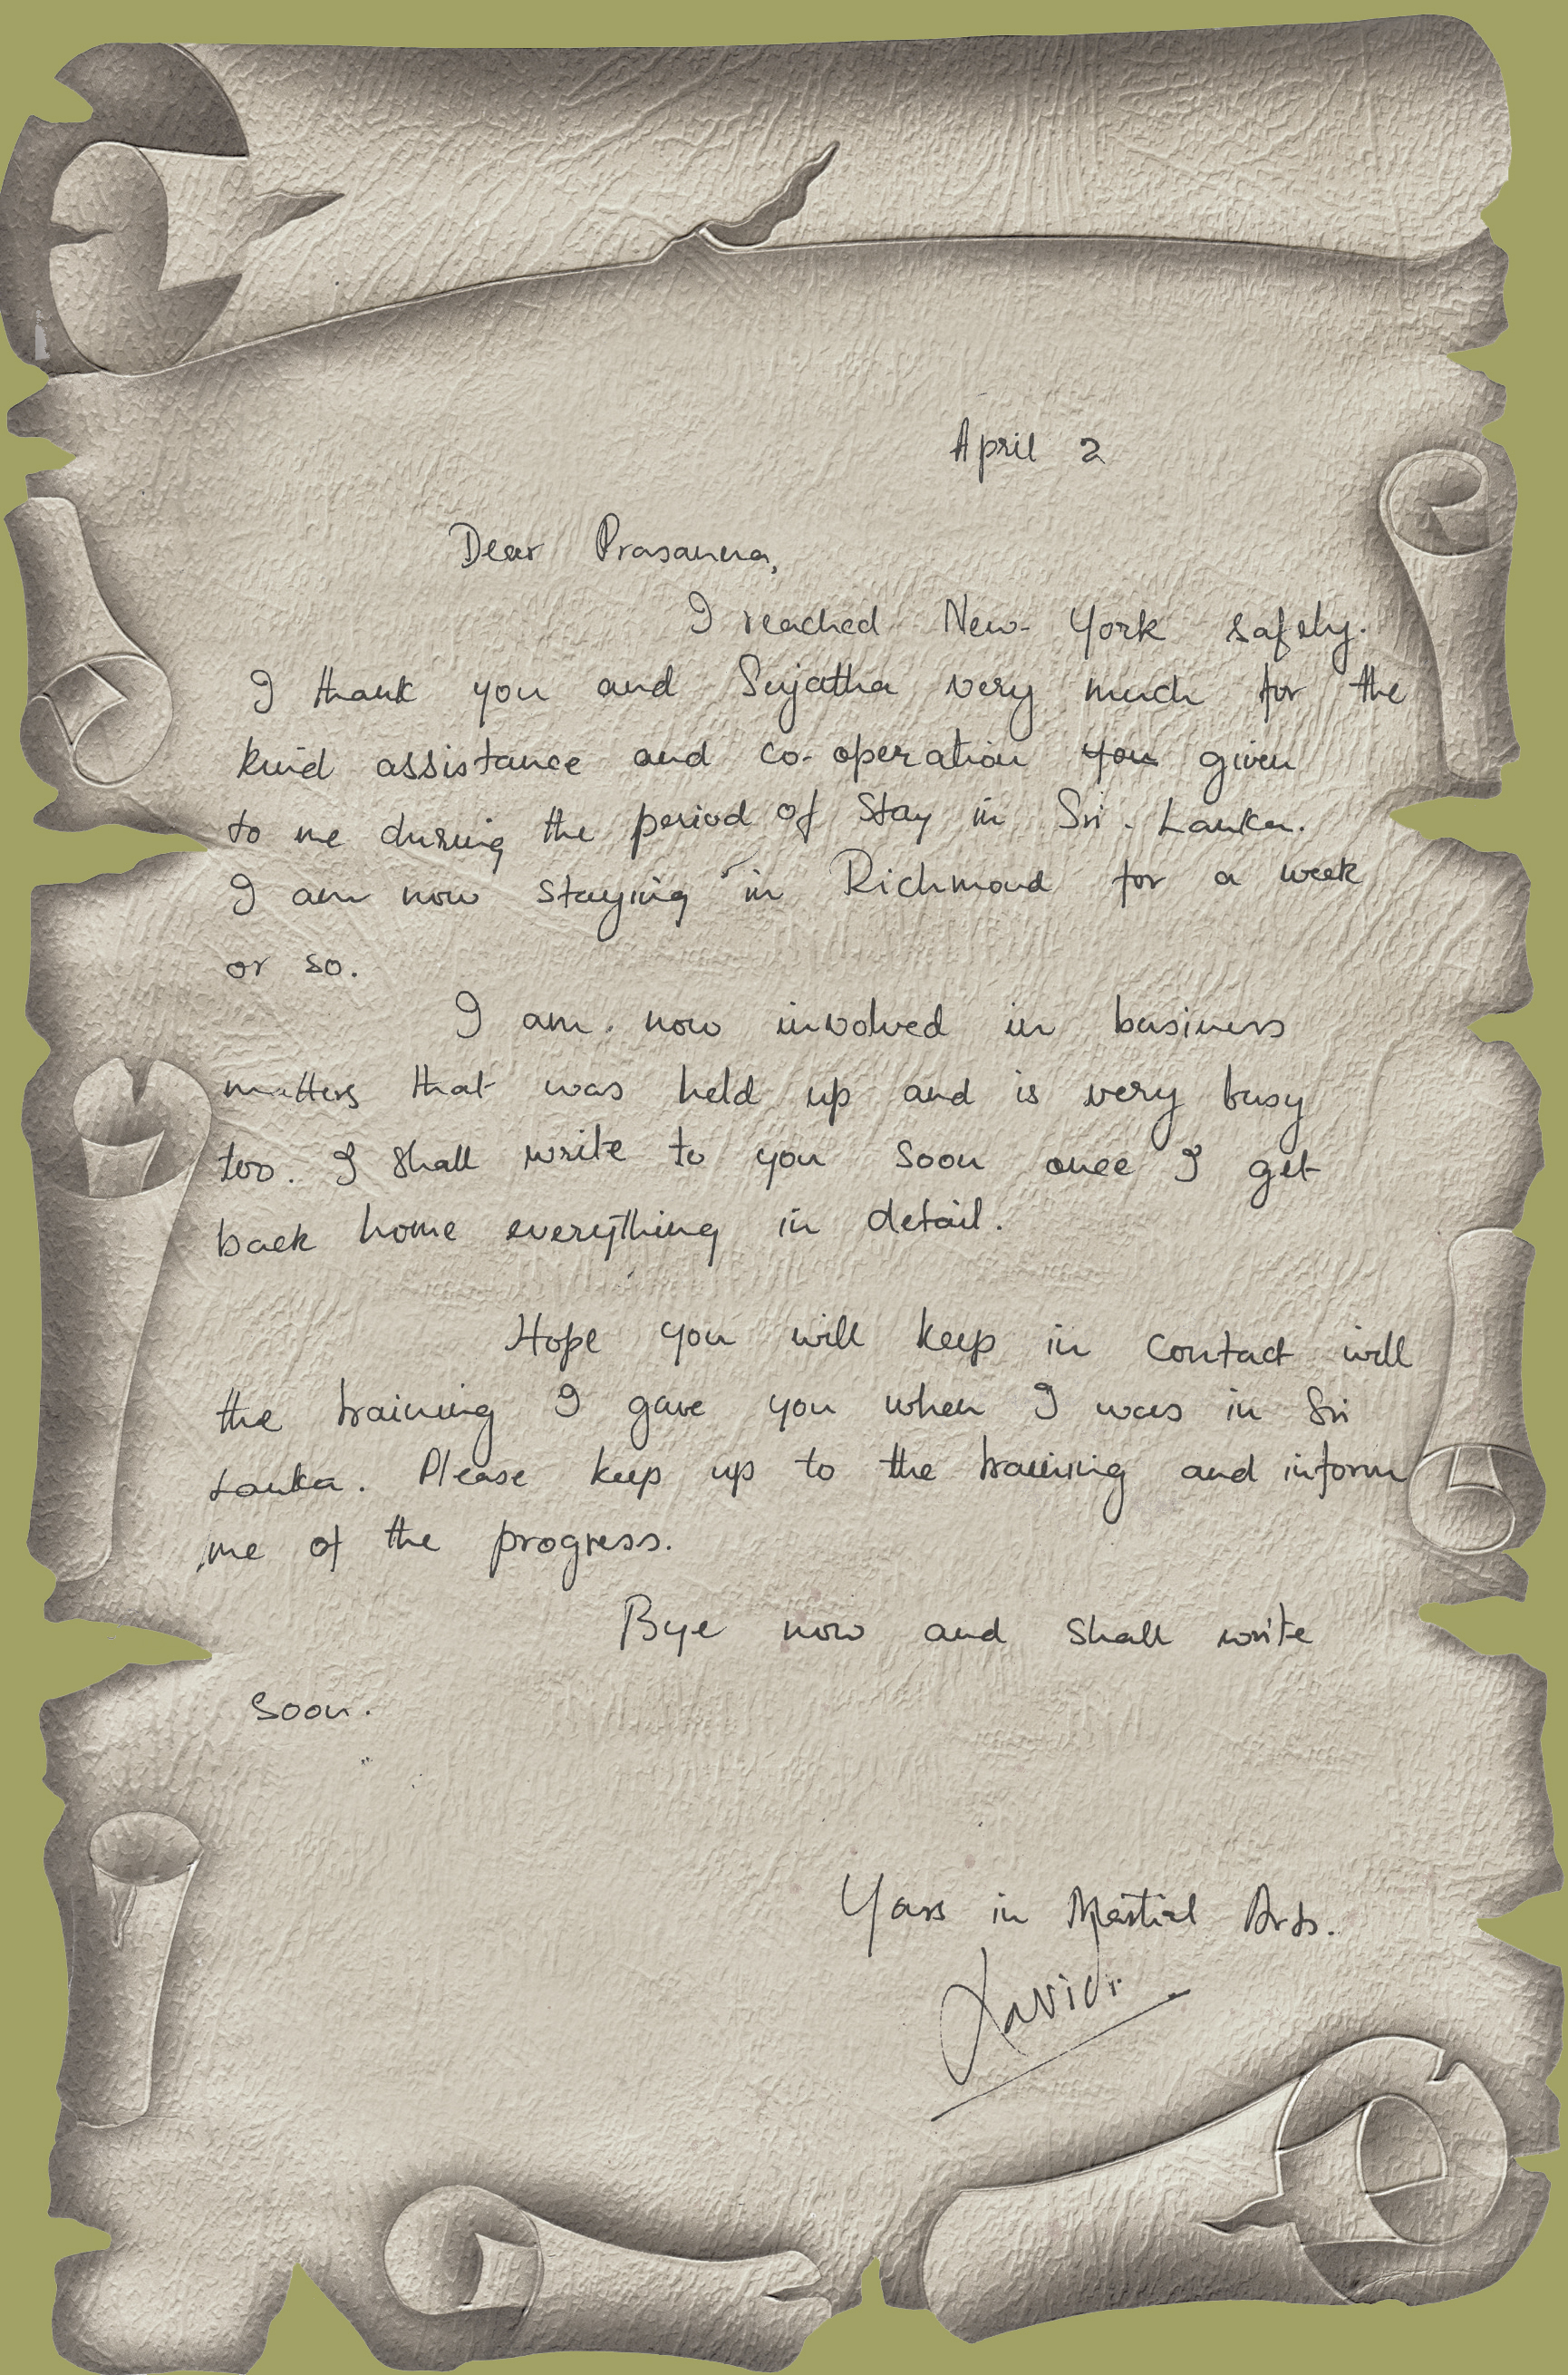 April 2
Dear Prasanna,
I reached New-York safely.
I thank you and Sujatha very much for the
kind assistance and co-operation you given
to me during the period of stay in Sri. Lanka.
I am now staying in Richmond for a week
or so.
I am. now involved in business
matters that was held up and is very busy
too. I shall write to you soon once I get
back home everything in detail.
Hope you will keep in contact will
the training I gave you when I was in Sri
Lanka. Please keep up to the training and inform
me of the progress.
Bye now and shall write
soon.
Yours in Martial Arts.
Xavier.